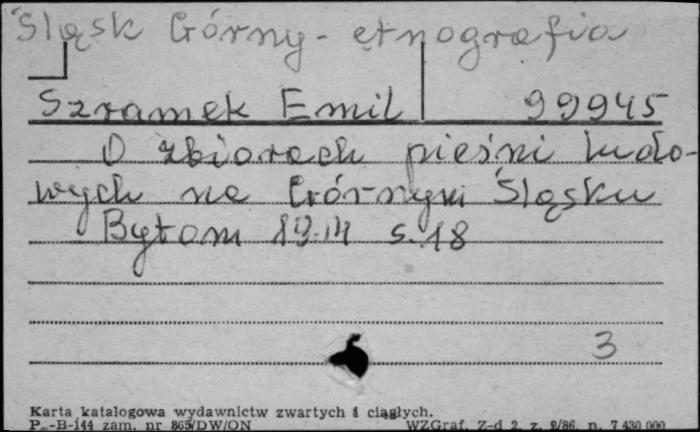 Śląsk Górny - etnografia
Szramek Emil 99945
O zbiorach pieśni ludo-
wych na Górnym Śląsku
Bytom s. 18
3
Karta katalogowa wydawnictw zwartych i ciągłych.
P.-B-144 zam. nr 865/DW/ON WZGraf. Z-d 2, z. 2/86. n. 7 430 000